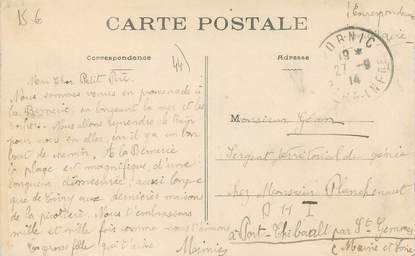 15 €
CARTE POSTALE
(Correspondance
militaire
Correspondance
Adresse
44
ORNIC
19 *
27 - 9
14
INFRE
Mon Cher Petit Père
Nous sommes venues en promenade à
la Bernerie en longeant la mer et les
Nous allons reprendre le train
pour nous en aller, car il y a un bon
bout de chemin. A la Bernerie
la plage est magnifique, d'une
longueur démesurée, aussi longue
que de aux dernières maisons
de Nous t'embrassons
mille et mille fois comme nous t'aimons
Ta grosse fille qui t'aime
Monsieur
Sergent territorial du génie
chez Monsieur Planchenault
P H I
à Port-Thibault par Ste Gemmes
(Maine et Loire